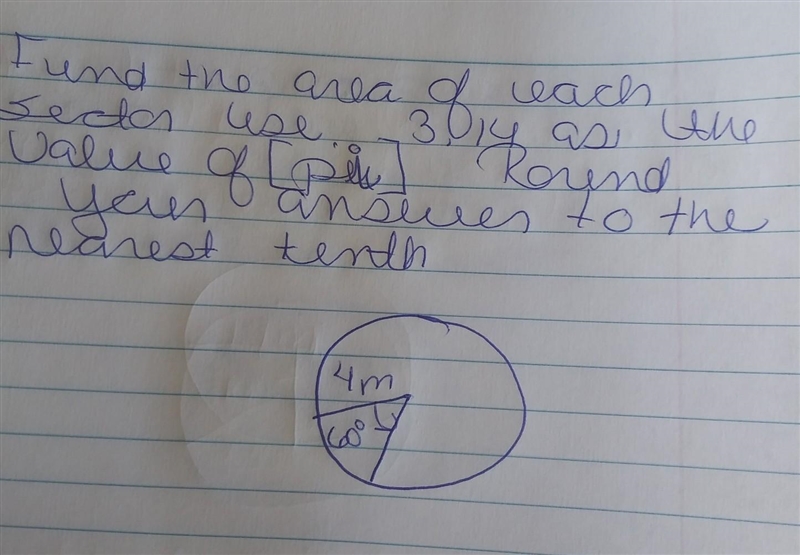 Fund the area of each
sector use 3.14 as the
Value of [pi] Round
your answer to the
nearest tenth
4m
60°